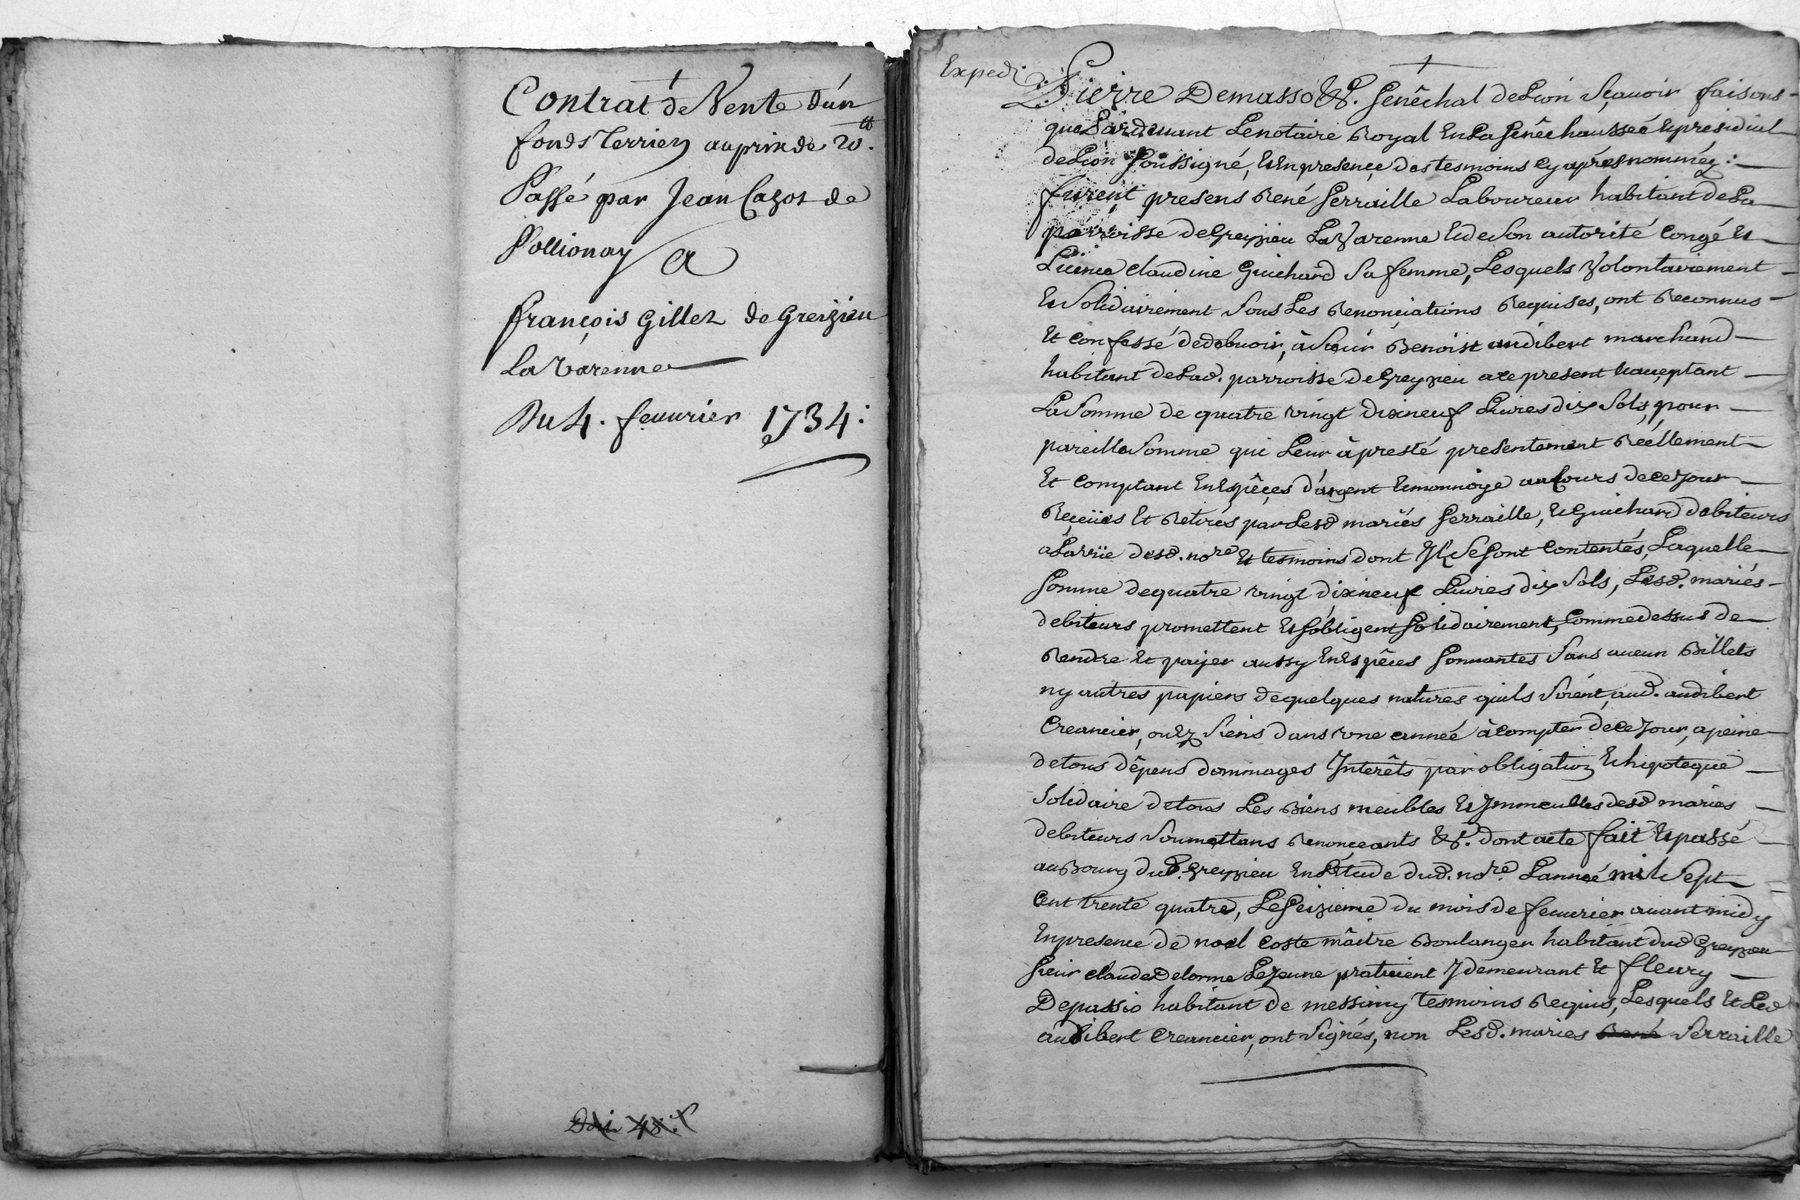 Contrat de Vente d'un
fonds Terrien au prix de 20.tt
Passé par Jean Cazot de
Pollionay a
françois Gillet de Greizieu
La Varenne
Du 4. feuurier 1734:
Expedi.
Pierre Demasso &c. Senêchal de Lion Sçauoir faisons
que Pardeuant Le notaire Royal En La Senêchaussée Epresidial
de Lion Soussigné, Et En presence des tesmoins cy aprés nommés:
furent presens René Serraille Laboureur habitant de La
parroisse de Greyzieu La Varenne Et de Son autorité Congé Et
Licence Claudine Guichard Sa femme, Lesquels Volontairement
Et Solidairement Sous Les Renonciations Requises, ont Reconnus
Et Confessé de debuoir, à Sieur Benoist audibert marchand
habitant de Lad. parroisse de Greyzieu a ce present Et acceptant
La Somme de quatre vingt dixneuf Liures dix Sols, pour
pareille Somme qui Leur à presté presentement Réellement
Et Comptant En Espêces d'argent Et monnoÿe au Cours de ce Jour
Reçeües Et Retirés par Lesd mariés Serraille, Et Guichard debiteurs
a La vüe dud. nore Et tesmoins dont Ils Se Sont Contentés, Laquelle
Somme de quatre vingt dixneuf Liures dix Sols, Lesd. mariés
debiteurs promettent Et Sobligent Solidairement, Comme dessus de
Rendre Et paÿer aussy En Espêces Sonnantes Sans aucun Billets
ny autres papiers de quelques natures quils Soient, aud. audibert
Creancier, ou Ez Siens dans une année à Compter de ce Jour, a peine
de tous dêpens dommages Interêts par obligation Et hipoteque
Solidaire de tous Les Biens meubles Et Immeubles desd mariés
debiteurs Soumettans Renonceants &c. dont acte fait Et passé
au Bourg dud. Greyzieu En L'Etude dud. nore L'année mil Sept
Cent trente quatre, Le Seizieme du mois de feuurier auant midy
En presence de noel Coste mâitre Boulanger habitant dud Greyzieu
Sieur Claude Delorme Le Jeune praticient Y demeurant Et fleury
Depassio habitant de messimy tesmoins Requis, Lesquels Et Led
audibert Creancier, ont Signés, non Lesd. maries René Serraille